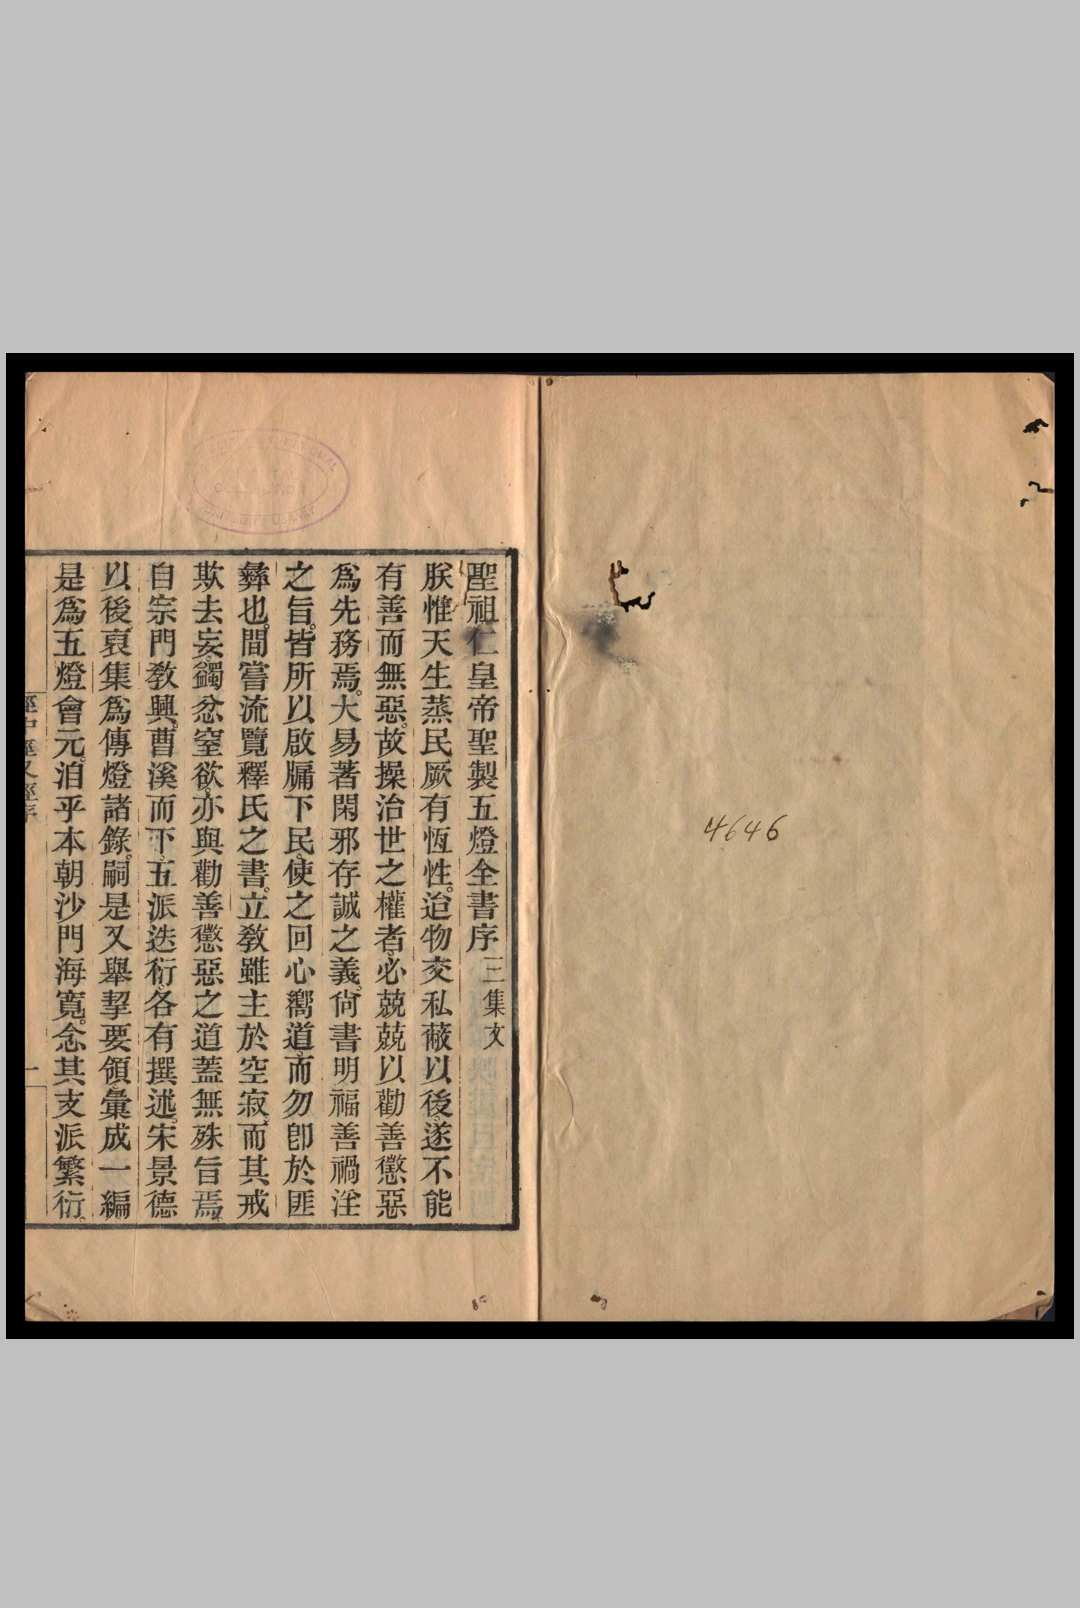 4646
聖祖仁皇帝聖製五燈全書序 三集文
朕惟天生蒸民厥有恆性。迨物交私蔽以後、遂不能
有善而無惡。故操治世之權者、必兢兢以勸善懲惡
爲先務焉。大易著閑邪存誠之義。尙書明福善禍淫
之旨。皆所以啟牖下民。使之回心嚮道、而勿卽於匪
彝也。間嘗流覽釋氏之書。立敎雖主於空寂、而其戒
欺去妄、蠲忿窒欲、亦與勸善懲惡之道蓋無殊旨焉。
自宗門敎興。曹溪而下、五派迭衍、各有撰述。宋景德
以後裒集爲傳燈諸錄。嗣是又舉挈要領、彙成一編
是爲五燈會元。洎乎本朝沙門海寬。念其支派繁衍。
一